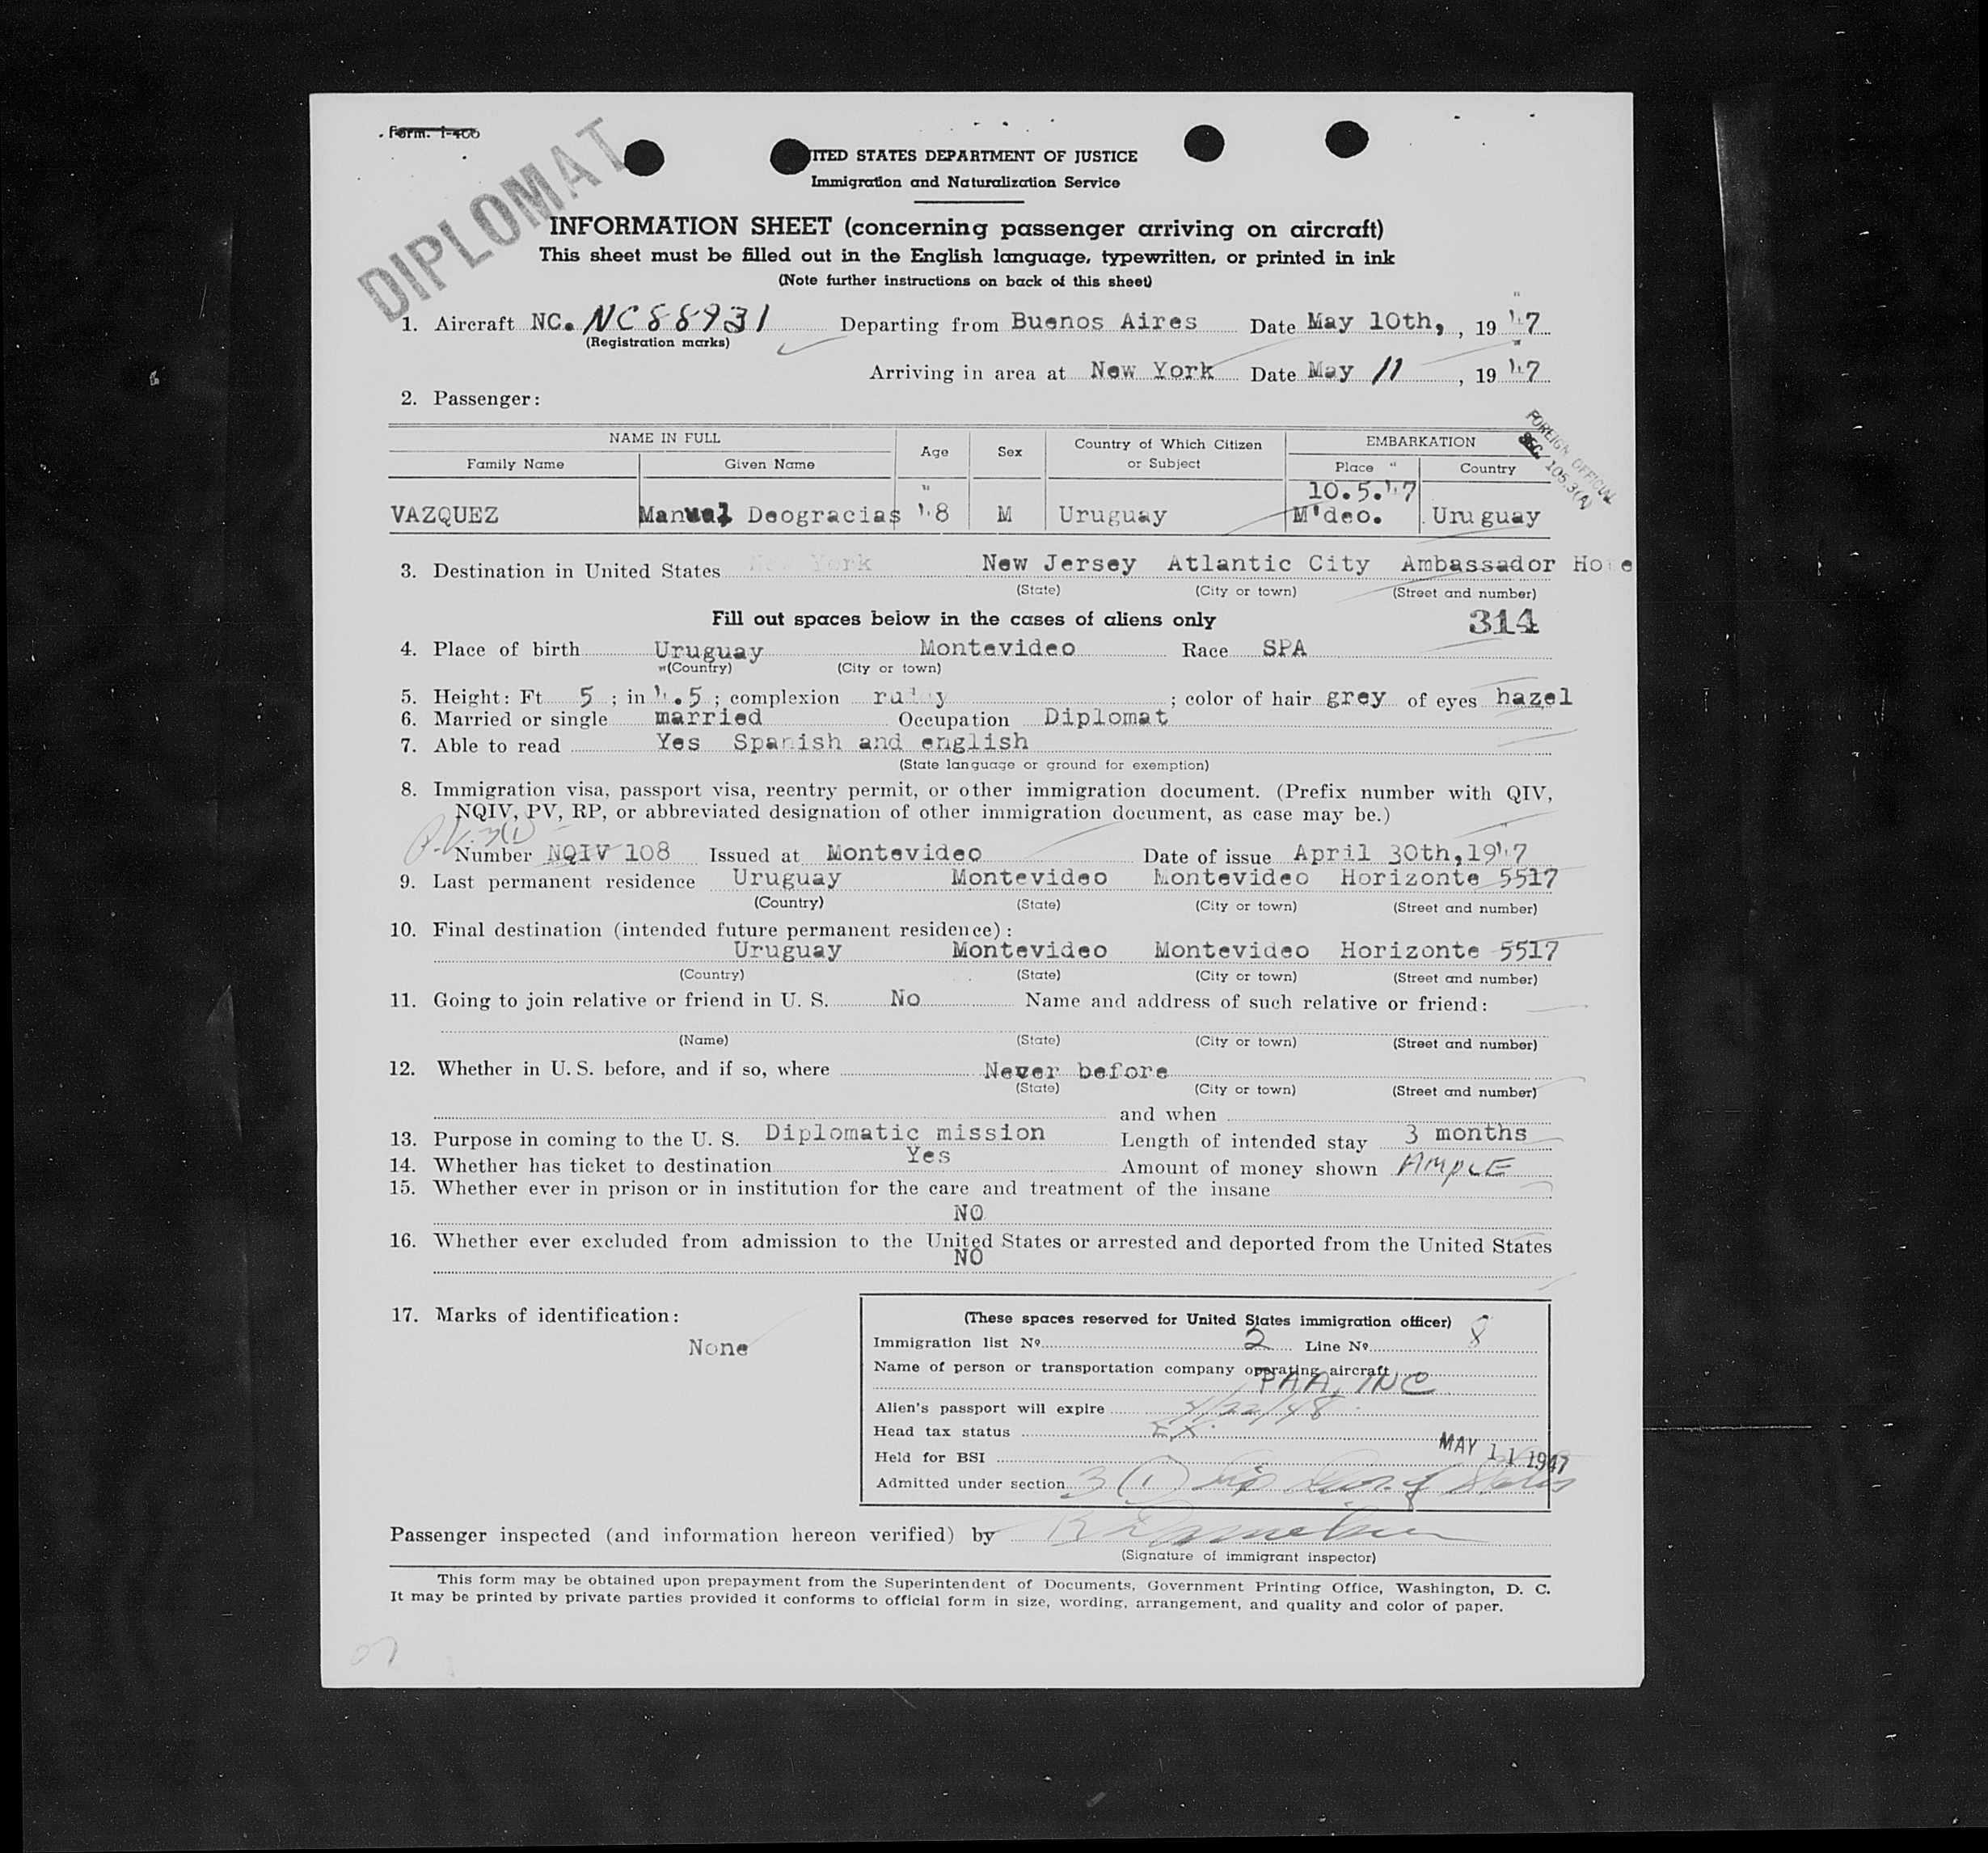 Form. I-466
DIPLOMAT
ITED STATES DEPARTMENT OF JUSTICE
Immigration and Naturalization Service
INFORMATION SHEET (concerning passenger arriving on aircraft)
This sheet must be filled out in the English language, typewritten, or printed in ink
(Note further instructions on back of this sheet)
1. Aircraft NC. NC88931 Departing from Buenos Aires Date May 10th, , 19 47
(Registration marks)
Arriving in area at New York Date May 11 , 19 47
2. Passenger:
NAME IN FULL Age Sex Country of Which Citizen or Subject EMBARKATION
Family Name Given Name Place Country
FOREIGN OFFICIAL
SEC. 105.3(A)
10.5.47
VAZQUEZ Manuel Deogracias 48 M Uruguay M'deo. Uruguay
3. Destination in United States New York New Jersey Atlantic City Ambassador Hote
(State) (City or town) (Street and number)
Fill out spaces below in the cases of aliens only 314
4. Place of birth Uruguay Montevideo Race SPA
(Country) (City or town)
5. Height: Ft 5 ; in 4.5 ; complexion ruddy ; color of hair grey of eyes hazel
6. Married or single married Occupation Diplomat
7. Able to read Yes Spanish and english
(State language or ground for exemption)
8. Immigration visa, passport visa, reentry permit, or other immigration document. (Prefix number with QIV,
NQIV, PV, RP, or abbreviated designation of other immigration document, as case may be.)
P.V. 3(1)
Number NQIV 108 Issued at Montevideo Date of issue April 30th,1947
9. Last permanent residence Uruguay Montevideo Montevideo Horizonte 5517
(Country) (State) (City or town) (Street and number)
10. Final destination (intended future permanent residence):
Uruguay Montevideo Montevideo Horizonte 5517
(Country) (State) (City or town) (Street and number)
11. Going to join relative or friend in U. S. No Name and address of such relative or friend:
(Name) (State) (City or town) (Street and number)
12. Whether in U. S. before, and if so, where Never before
(State) (City or town) (Street and number)
and when
13. Purpose in coming to the U. S. Diplomatic mission Length of intended stay 3 months
14. Whether has ticket to destination Yes Amount of money shown AMPLE
15. Whether ever in prison or in institution for the care and treatment of the insane
NO
16. Whether ever excluded from admission to the United States or arrested and deported from the United States
NO
17. Marks of identification:
None
(These spaces reserved for United States immigration officer)
Immigration list No. 2 Line No. 8
Name of person or transportation company operating aircraft
PAA, INC
Alien's passport will expire 4/22/48
Head tax status EX.
MAY 11 1947
Held for BSI
Admitted under section 3 (1)
Passenger inspected (and information hereon verified) by
(Signature of immigrant inspector)
This form may be obtained upon prepayment from the Superintendent of Documents, Government Printing Office, Washington, D. C.
It may be printed by private parties provided it conforms to official form in size, wording, arrangement, and quality and color of paper.
07